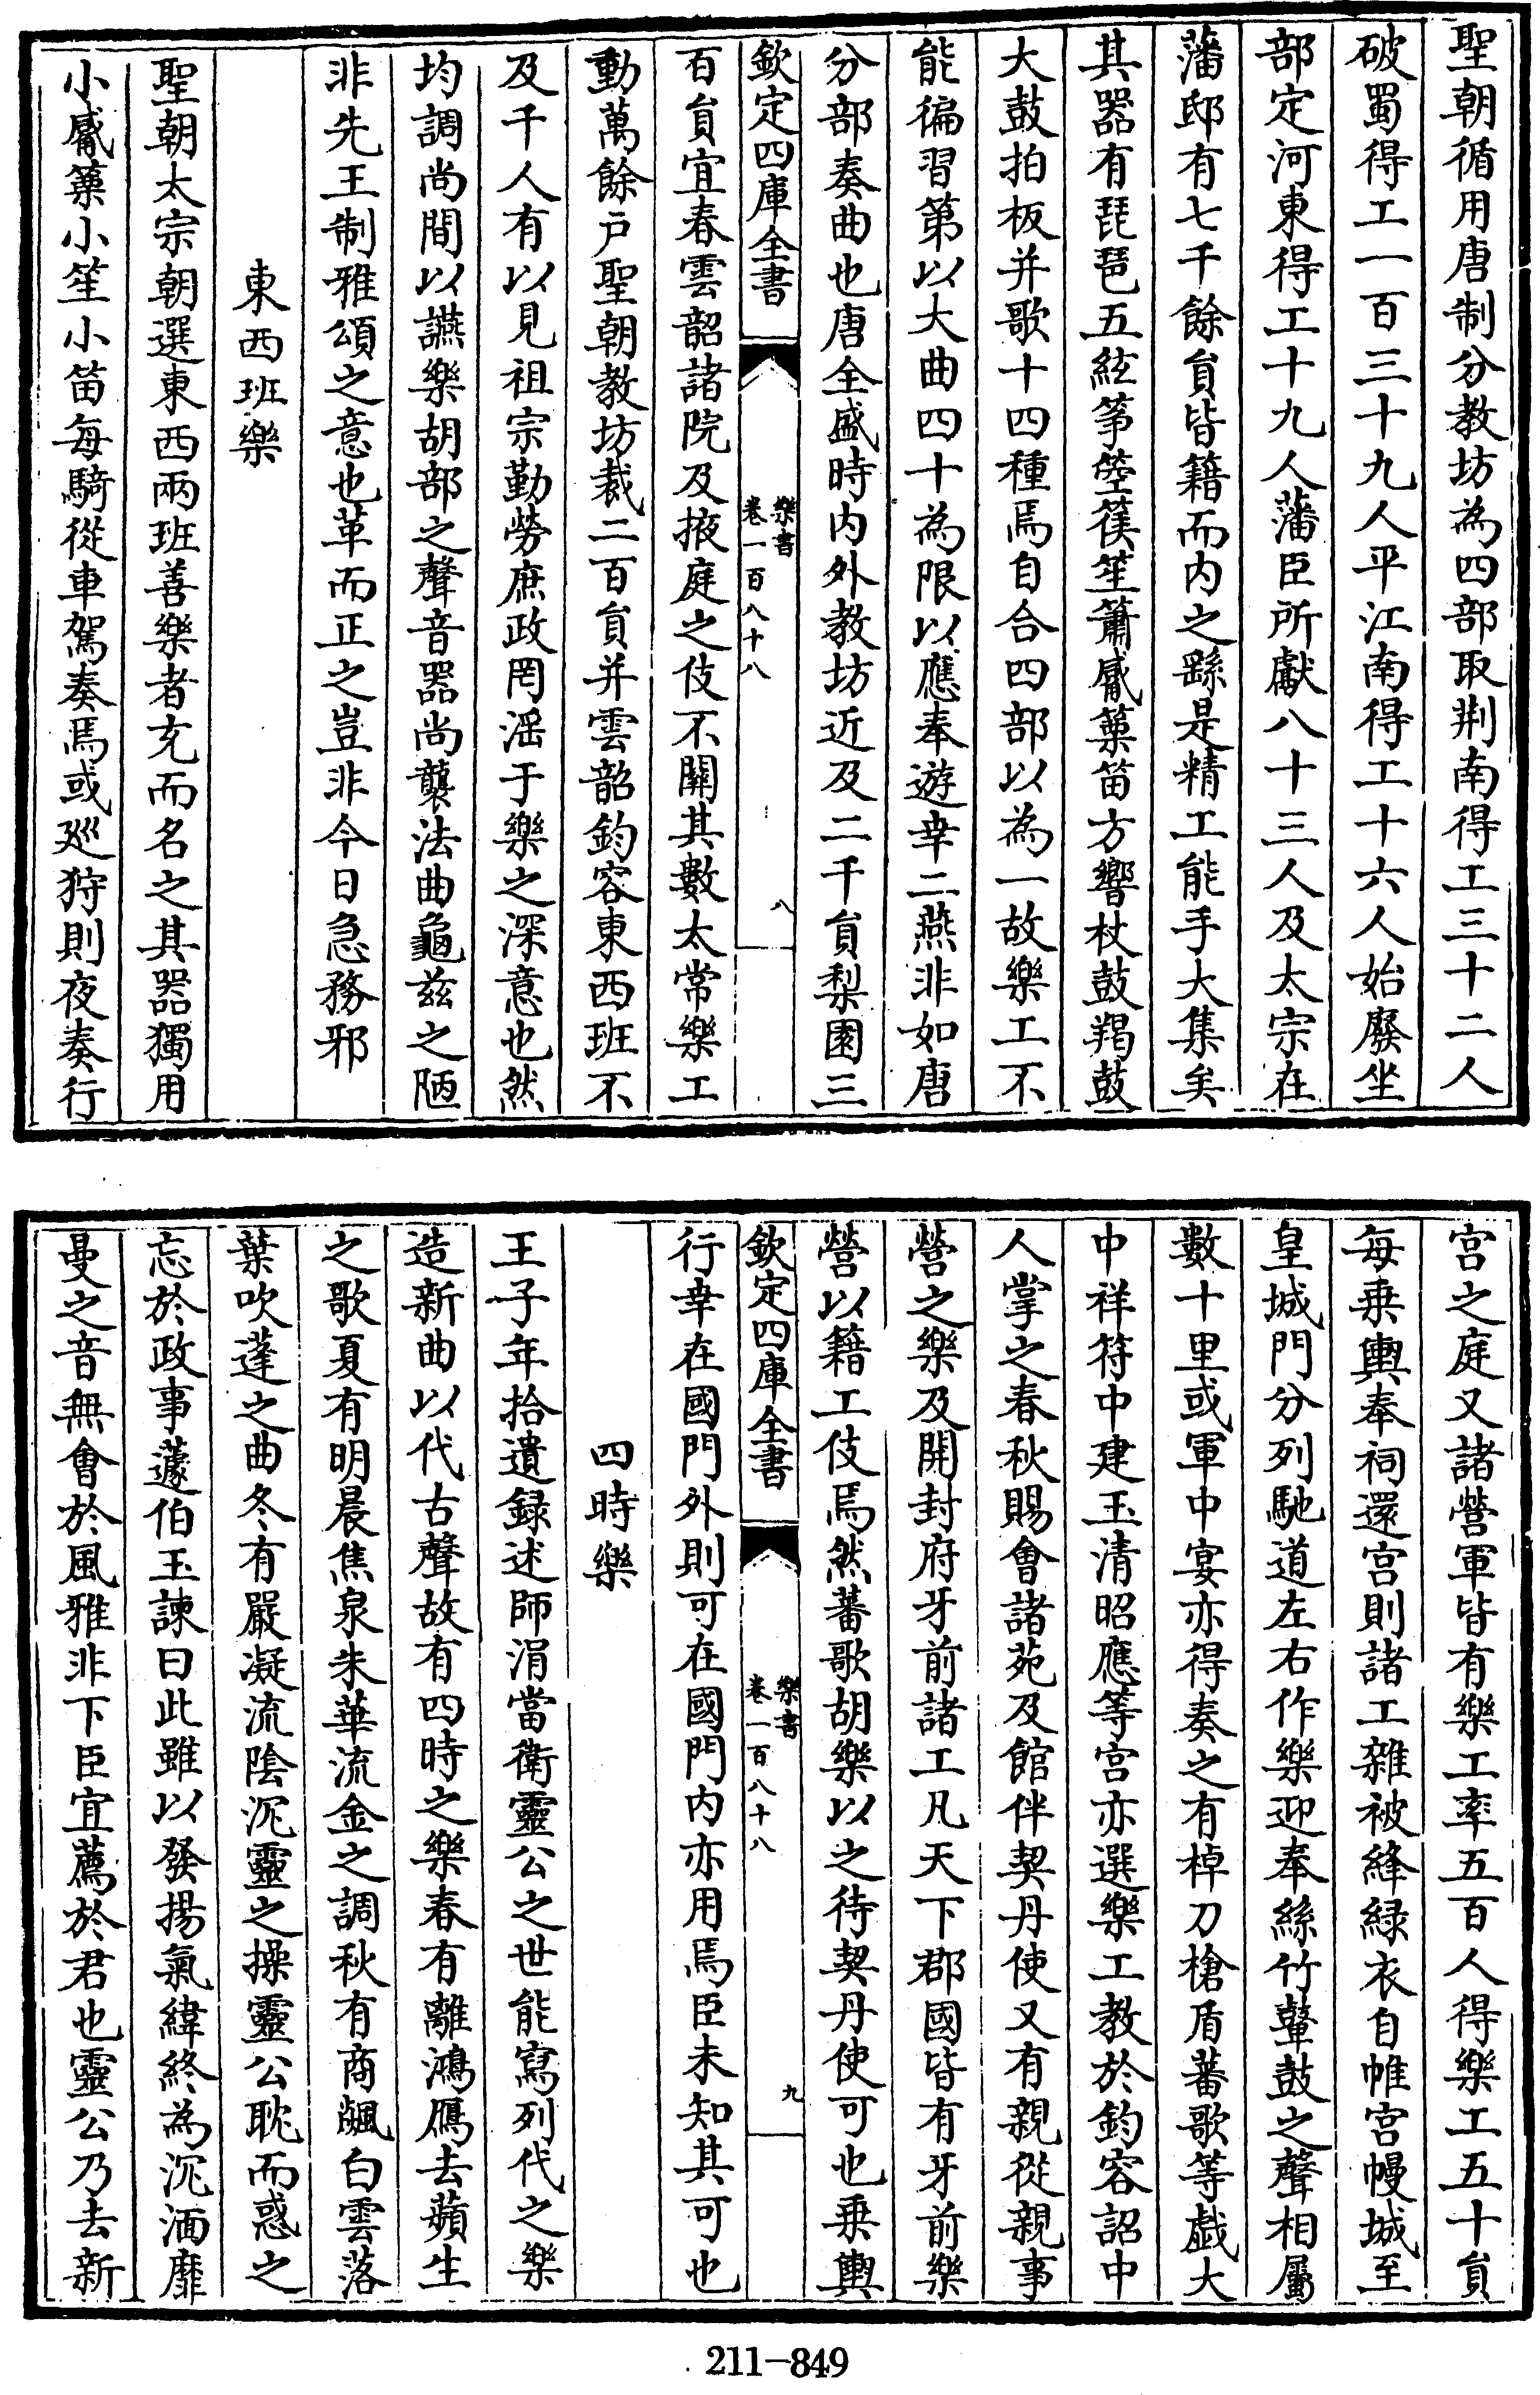 聖朝循用唐制分教坊為四部取荆南得工三十二人
破蜀得工一百三十九人平江南得工十六人始廢坐
部定河東得工十九人藩臣所獻八十三人及太宗在
藩邸有七千餘員皆籍而内之繇是精工能手大集矣
其器有琵琶五絃筝箜篌笙簫觱篥笛方響杖鼓羯鼓
大鼓拍板并歌十四種焉自合四部以為一故樂工不
能徧習第以大曲四十為限以應奉遊幸二燕非如唐
分部奏曲也唐全盛時内外教坊近及二千員梨園三
欽定四庫全書
樂書
卷一百八十八
八
百員宜春雲韶諸院及掖庭之伎不關其數太常樂工
動萬餘戶聖朝教坊裁二百員并雲韶鈞容東西班不
及千人有以見祖宗勤勞庶政罔滛于樂之深意也然
均調尚間以讌樂胡部之聲音器尚襲法曲龜兹之陋
非先王制雅頌之意也革而正之豈非今日急務邪
東西班樂
聖朝太宗朝選東西兩班善樂者充而名之其器獨用
小觱篥小笙小笛每騎從車駕奏焉或廵狩則夜奏行
宫之庭又諸營軍皆有樂工率五百人得樂工五十員
每乗輿奉祠還宫則諸工雜被絳緑衣自帷宫幔城至
皇城門分列馳道左右作樂迎奉絲竹鼙鼓之聲相屬
數十里或軍中宴亦得奏之有棹刀槍盾蕃歌等戯大
中祥符中建玉清昭應等宫亦選樂工教於鈞容詔中
人掌之春秋賜會諸苑及館伴契丹使又有親從親事
營之樂及開封府牙前諸工凡天下郡國皆有牙前樂
營以籍工伎焉然蕃歌胡樂以之待契丹使可也乗輿
欽定四庫全書
樂書
卷一百八十八
九
行幸在國門外則可在國門内亦用焉臣未知其可也
四時樂
王子年拾遺録述師涓當衛靈公之世能寫列代之樂
造新曲以代古聲故有四時之樂春有離鴻鴈去蘋生
之歌夏有明晨焦泉朱華流金之調秋有商飊白雲落
葉吹蓬之曲冬有嚴凝流陰沉靈之操靈公耽而惑之
忘於政事蘧伯玉諫曰此雖以發揚氣緯終為沉湎靡
曼之音無會於風雅非下臣宜薦於君也靈公乃去新
211-849